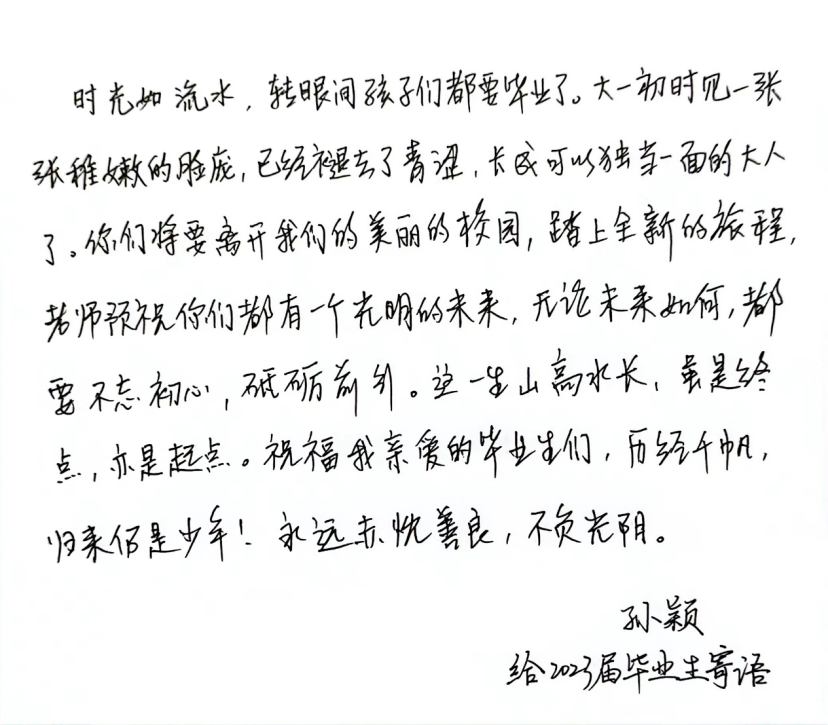 时光如流水，转眼间孩子们都要毕业了。大一初时见一张
张稚嫩的脸庞，已经褪去了青涩，长成可以独当一面的大人
了。你们将要离开我们的美丽的校园，踏上全新的旅程，
老师预祝你们都有一个光明的未来，无论未来如何，都
要不忘初心，砥砺前行。这一生山高水长，虽是终
点，亦是起点。祝福我亲爱的毕业生们，历经千帆，
归来仍是少年！永远赤忱善良，不负光阴。
孙颖
给2023届毕业生寄语